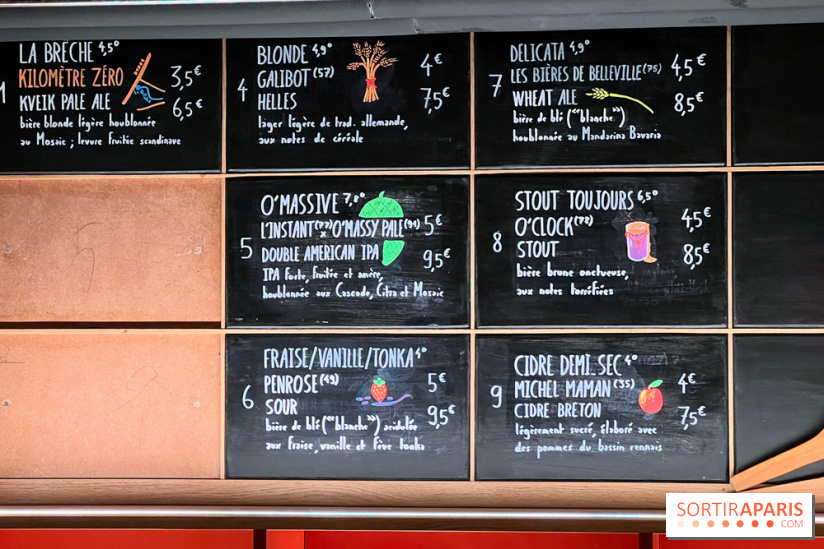 1
LA BRÈCHE 4,5°
KILOMÈTRE ZÉRO
KVEIK PALE ALE
3,5€
6,5€
bière blonde légère houblonnée
au Mosaic ; levure fruitée scandinave
4
BLONDE 4,9°
GALIBOT (57)
HELLES
4€
7,5€
lager légère de trad. allemande,
aux notes de céréale
7
DELICATA 4,9°
LES BIÈRES DE BELLEVILLE (75)
WHEAT ALE
4,5€
8,5€
bière de blé ("blanche")
houblonnée au Mandarina Bavaria
5
O'MASSIVE 7,8°
L'INSTANT (77) x O'MASSY PALE (91)
DOUBLE AMERICAN IPA
5€
9,5€
IPA forte, fruitée et amère,
houblonnée aux Cascade, Citra et Mosaic
8
STOUT TOUJOURS 6,5°
O'CLOCK (78)
STOUT
4,5€
8,5€
bière brune onctueuse,
aux notes torréfiées
6
FRAISE/VANILLE/TONKA 4°
PENROSE (49)
SOUR
5€
9,5€
bière de blé ("blanche") acidulée
aux fraise, vanille et fève tonka
9
CIDRE DEMI-SEC 4°
MICHEL MAMAN (35)
CIDRE BRETON
4€
7,5€
légèrement sucré, élaboré avec
des pommes du bassin rennais
SORTIRAPARIS
.COM